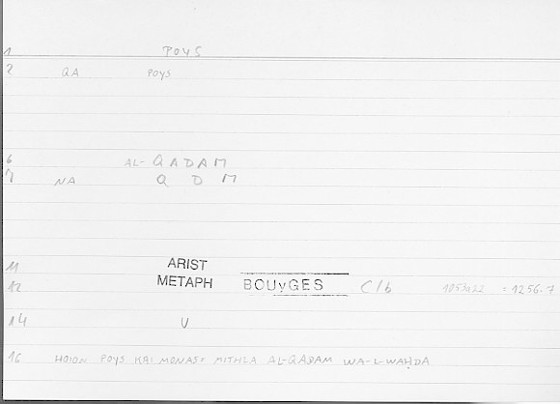 1 POYS
2 QA POYS
6 AL-QADAM
7 NA Q D M
11 ARIST
12 METAPH BOUYGES C1b 1053a22 = 1256.7
14 V
16 HOION POYS KAI MONAS: MITHLA AL-QADAM WA-L-WAḤDA